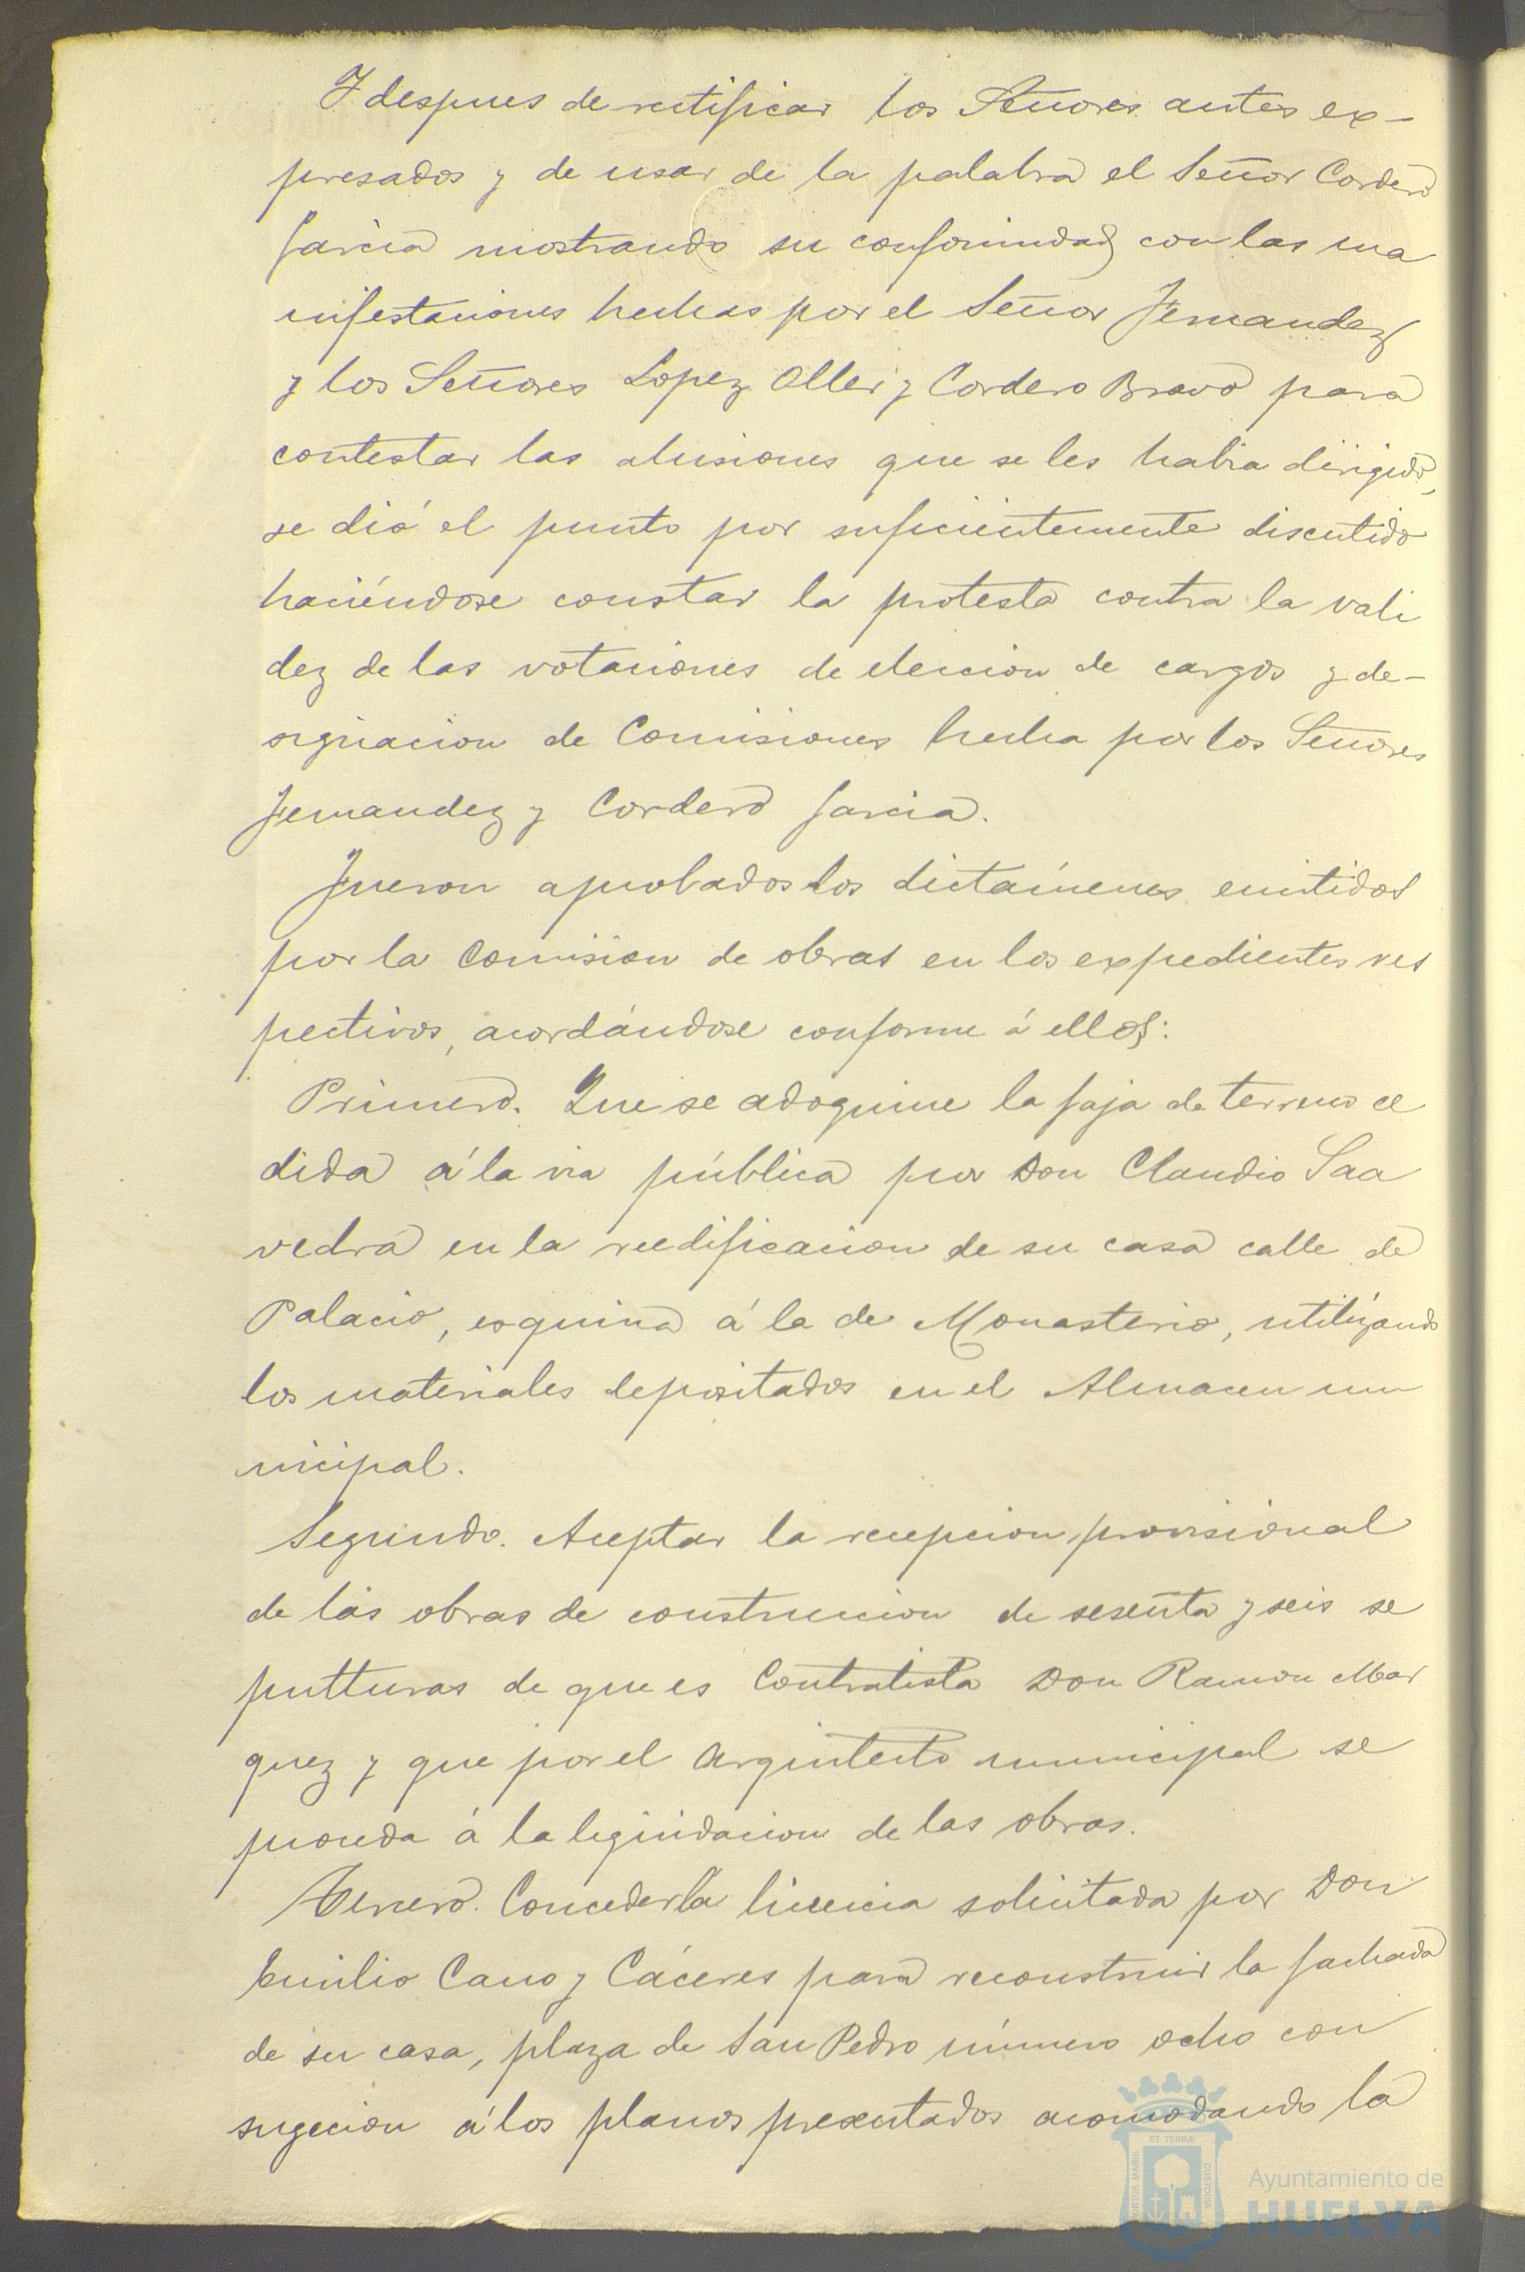 Y despues de rectificar los Señores antes ex-
presados y de usar de la palabra el Señor Cordero
Garcia mostrando su conformidad con las ma
nifestaciones hechas por el Señor Fernandez
y los Señores Lopez Oller y Cordero Bravo para
contestar las alusiones que se les habia dirigido,
se dió el punto por suficientemente discutido
haciéndose constar la protesta contra la vali
dez de las votaciones de eleccion de cargos y de-
signacion de Comisiones hecha por los Señores
Fernandez y Cordero Garcia.
Fueron aprobados los dictámenes emitidos
por la Comision de obras en los expedientes res
pectivos, acordándose conforme á ellos:
Primero. Que se adoquine la faja de terreno ce
dida á la via pública por Don Claudio Saa
vedra en la reedificacion de su casa calle de
Palacio, esquina á la de Monasterio, utilizando
los materiales depositados en el Almacen mu
nicipal.
Segundo. Aceptar la recepcion provisional
de las obras de construccion de sesenta y seis se
pulturas de que es Contratista Don Ramon Mar
quez y que por el Arquitecto municipal se
proceda á la liquidacion de las obras.
Tercero. Conceder la licencia solicitada por Don
Emilio Cano y Cáceres para reconstruir la fachada
de su casa, plaza de San Pedro número ocho con
sugecion á los planos presentados acomodando la
PORTUS MARIS
ET TERRÆ
CUSTODIA
Ayuntamiento de
HUELVA